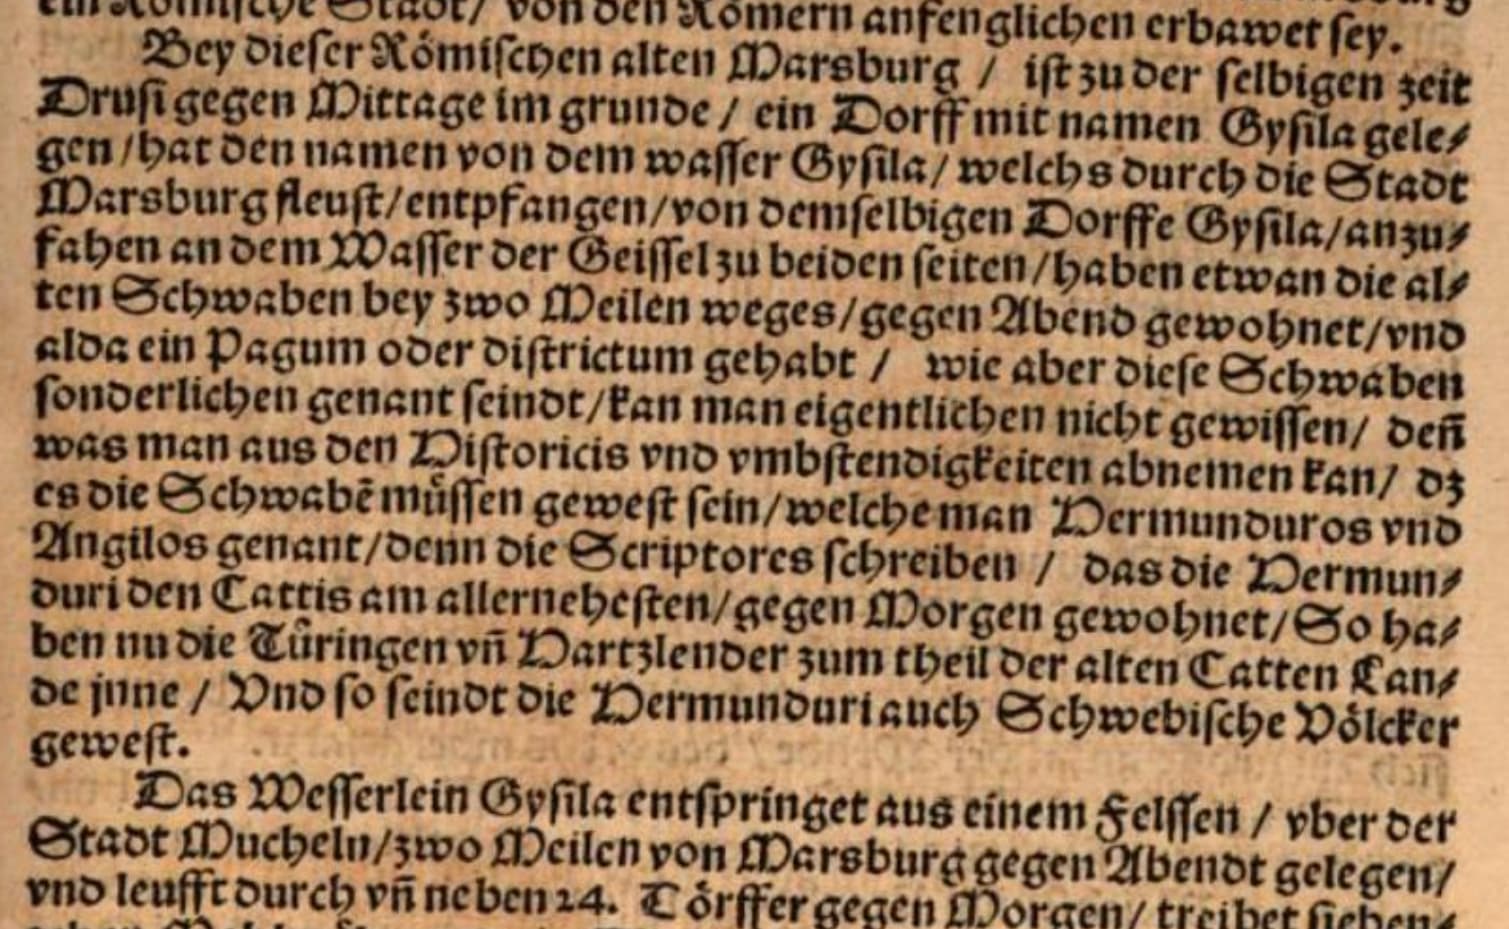 ein Römische Stadt/ von den Römern anfenglichen erbawet ſey.
Bey dieſer Römiſchen alten Marsburg / iſt zu der ſelbigen zeit
Druſi gegen Mittage im grunde / ein Dorff mit namen Gyſila gele⸗
gen / hat den namen von dem waſſer Gyſila / welchs durch die Stadt
Marsburg fleuſt / entpfangen / von demſelbigen Dorffe Gyſila / anzu⸗
fahen an dem Waſſer der Geiſſel zu beiden ſeiten / haben etwan die al⸗
ten Schwaben bey zwo Meilen weges / gegen Abend gewohnet / vnd
alda ein Pagum oder diſtrictum gehabt / wie aber dieſe Schwaben
ſonderlichen genant ſeindt / kan man eigentlichen nicht gewiſſen / deñ
was man aus den Hiſtoricis vnd vmbſtendigkeiten abnemen kan / dz
es die Schwabẽ müſſen geweſt ſein / welche man Hermunduros vnd
Angilos genant / denn die Scriptores ſchreiben / das die Hermun⸗
duri den Cattis am allerneheſten / gegen Morgen gewohnet / So ha⸗
ben nu die Türingen vñ Hartzlender zum theil der alten Catten Lan⸗
de jnne / Vnd ſo ſeindt die Hermunduri auch Schwebiſche Völcker
geweſt.
Das Weſſerlein Gyſila entſpringet aus einem Felſſen / vber der
Stadt Mucheln / zwo Meilen von Marsburg gegen Abendt gelegen /
vnd leufft durch vñ neben 24. Törffer gegen Morgen / treibet ſieben⸗